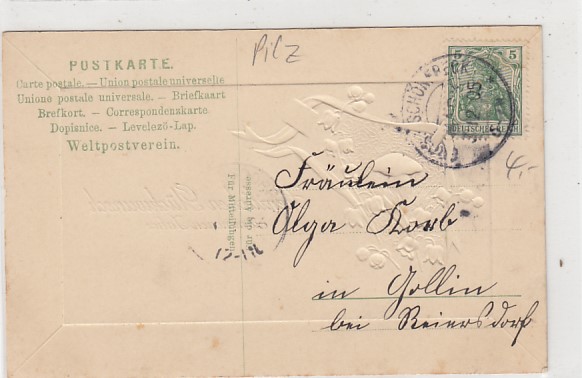 Pilz
POSTKARTE.
Carte postale. — Union postale universelle
Unione postale universale. — Briefkaart
Brefkort. — Correspondenzkarte.
Dopisnice. — Levelező-Lap.
Weltpostverein.
5 5
DEUTSCHES REICH
4,-
Für Mitteilungen
Für die Adresse
Fräulein
Olga Korb
in Gollin
bei Reiersdorf